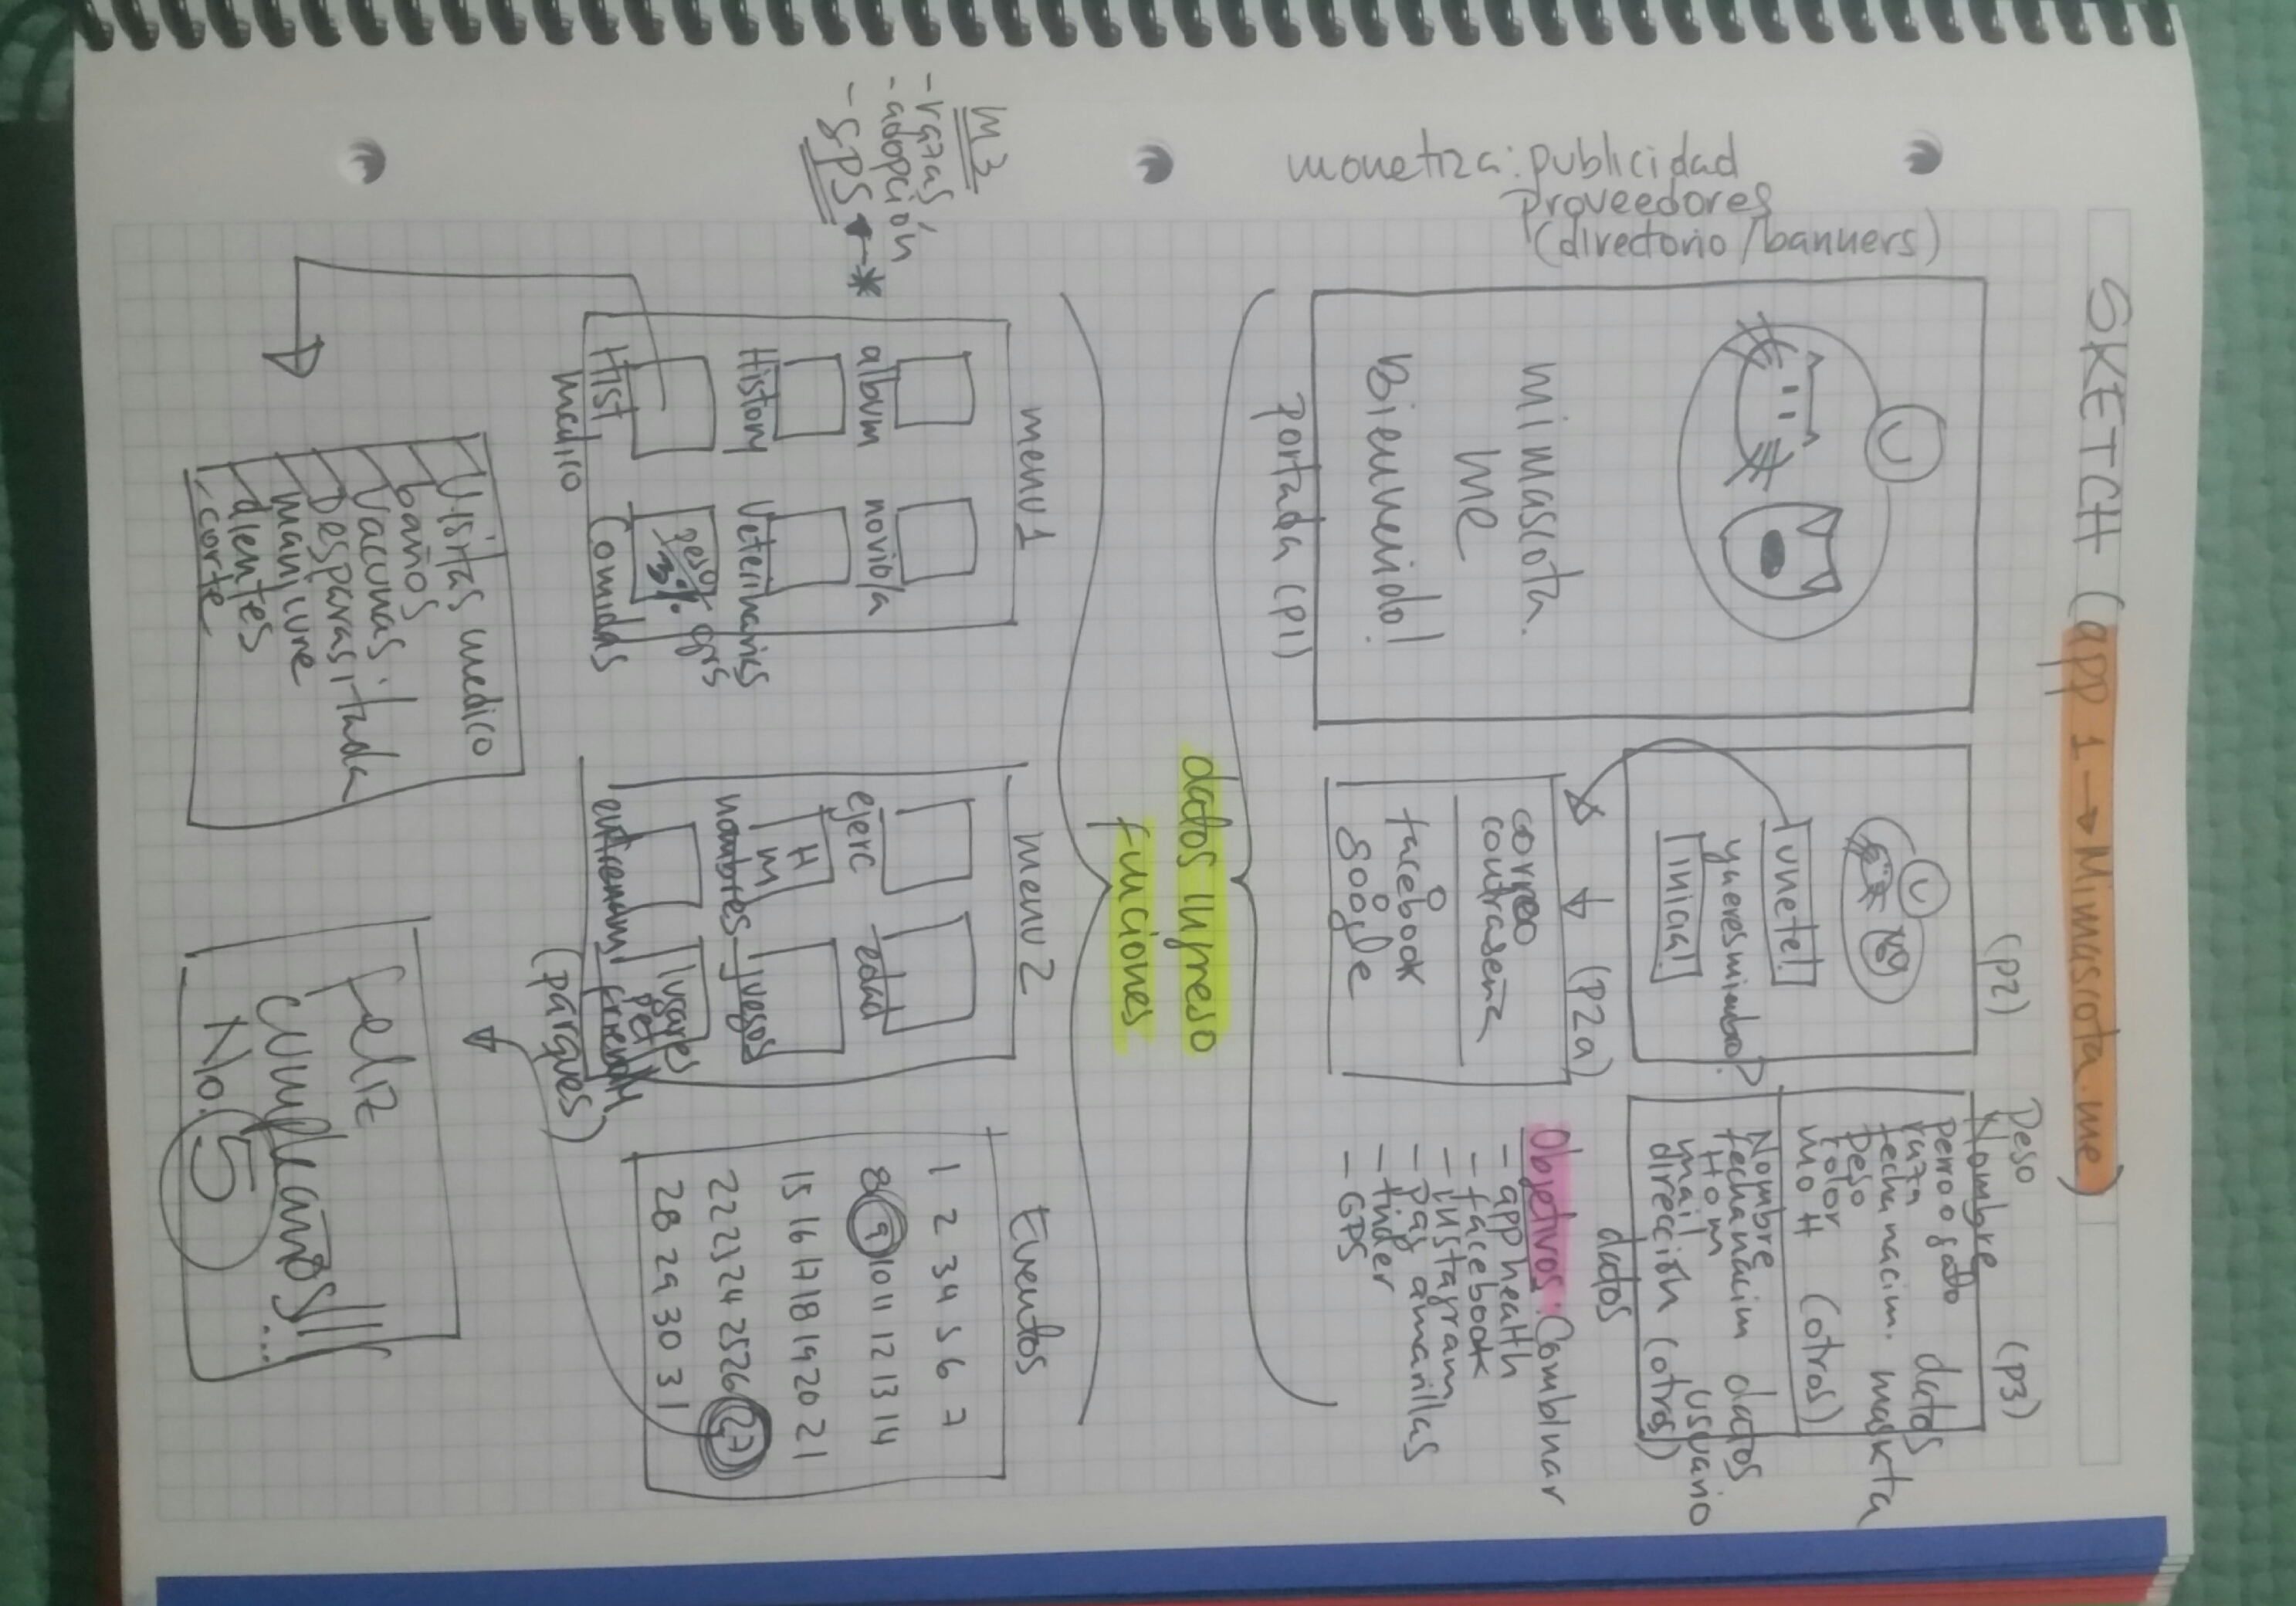 SKETCH (app 1 → Mimascota.me)
monetiza: publicidad
Proveedores
(directorio/banners)
mimascota.
me
Bienvenido!
portada (P1)
(P2)
unete!
ya eres miembro?
inicia!
(P2a)
correo
contraseña
o
facebook
o
google
Peso
Nombre
(P3)
perro o gato
raza
fecha nacim.
Peso
color
M o H (otros)
datos
maskta
Nombre
fecha nacim
H o m
mail
dirección (otros)
datos
usuario
datos
Objetivos: Combinar
- app health
- facebook
- instagram
- pag amarillas
- tinder
- GPS
datos ingreso
funciones
M3
- razas,
- adopción
- GPS ← *
menu 1
album novio/a
History Veterinarias
peso/3% grs
Hist. Comidas
medico
menu 2
ejerc edad
H
m
nombres juegos
lugares
pet
entrenam friendly
(parques)
Eventos
1 2 3 4 5 6 7
8 9 10 11 12 13 14
15 16 17 18 19 20 21
22 23 24 25 26 27
28 29 30 31
Visitas medico
baños
Vacunas.
Desparasitada
manicure
dientes
corte
feliz
cumpleaños!!!
No. 5